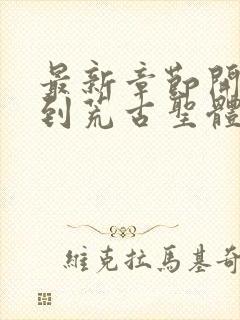 最新章節開
到荒古聖體
維克拉馬基奇